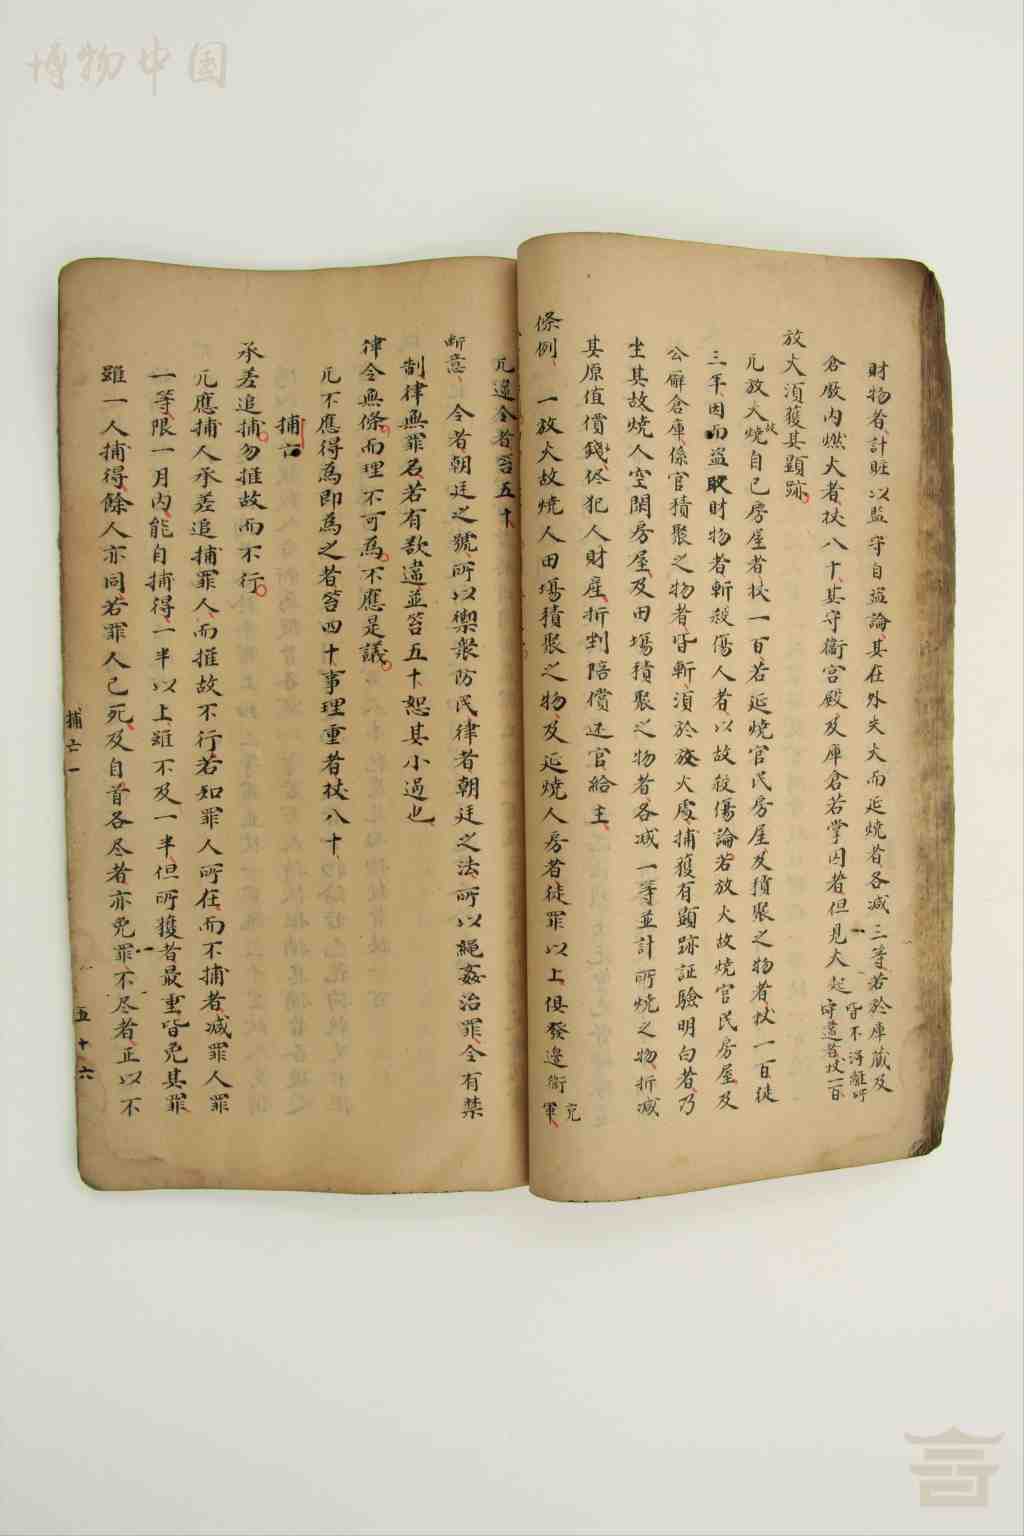 博物中国
財物者計賍以監守自盜論其在外失火而延燒者各減三等若於庫藏及
倉厫內燃火者杖八十其守衞宮殿及庫倉若掌囚者但見火起皆不淂離所
守違者杖一百
放火須獲其顕跡
凢放火故燒自己房屋者杖一百若延燒官民房屋及積聚之物者杖一百徒
三年因而盜取財物者斬殺傷人者以故殺傷論若放火故燒官民房屋及
公廨倉庫係官積聚之物者皆斬須於放火處捕獲有顕跡証驗明白者乃
坐其故燒人空閑房屋及田塲積聚之物者各減一等並計所燒之物折減
其原值價錢伱犯人財産折剉賠償还官給主
條例一放火故燒人田塲積聚之物及延燒人房者徒罪以上俱發邊衞充
軍
凢違令者笞五十
断意今者朝廷之號所以禦衆防民律者朝廷之法所以繩姦治罪令有禁
制律無罪名若有欲違並笞五十恕其小過也
律令無條而理不可為不應是議
凢不應得為即為之者笞四十事理重者杖八十
捕亡
承差追捕勿推故而不行
凢應捕人承差追捕罪人而推故不行若知罪人所在而不捕者減罪人罪
一等限一月內能自捕得一半以上雖不及一半但所獲者最重皆免其罪
雖一人捕得餘人亦同若罪人已死及自首各尽者亦免罪不尽者正以不
捕亡一
五十六